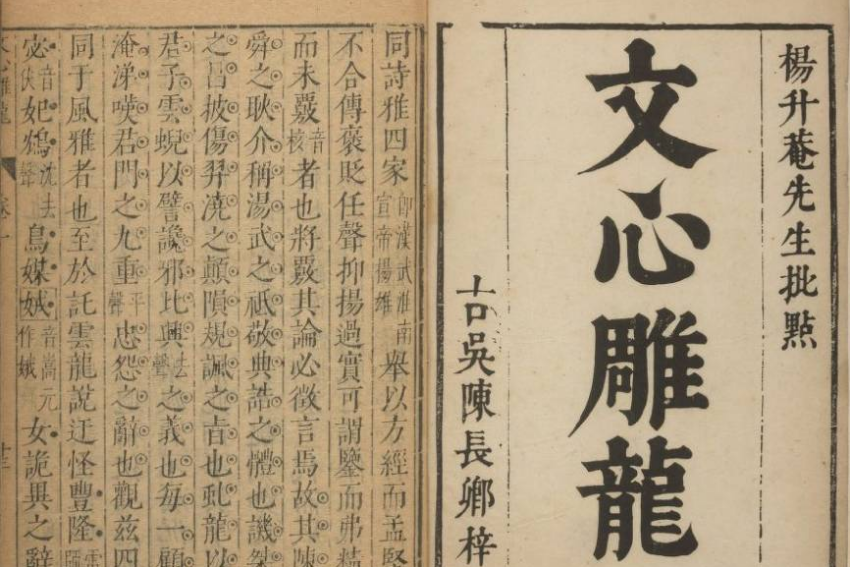 楊升菴先生批點
文心雕龍
古吳陳長卿梓
同詩雅四家即漢武淮南宣帝揚雄舉以方經而孟堅
不合傳褒貶任聲抑揚過實可謂鑒而弗精
而未覈音核者也將覈其論必徵言焉故其陳
舜之耿介稱湯武之祗敬典誥之體也譏桀
之昌披傷羿澆之顛隕規諷之旨也虬龍以
君子雲蜺以譬讒邪比興去聲之義也每一顧
淹涕嘆君門之九重平聲忠怨之辭也觀兹四
同于風雅者也至於託雲龍說迂怪豐隆
宓音伏妃鴆沈去聲鳥媒娀音嵩元作娥女詭異之辭
文心雕龍 卷一 十三